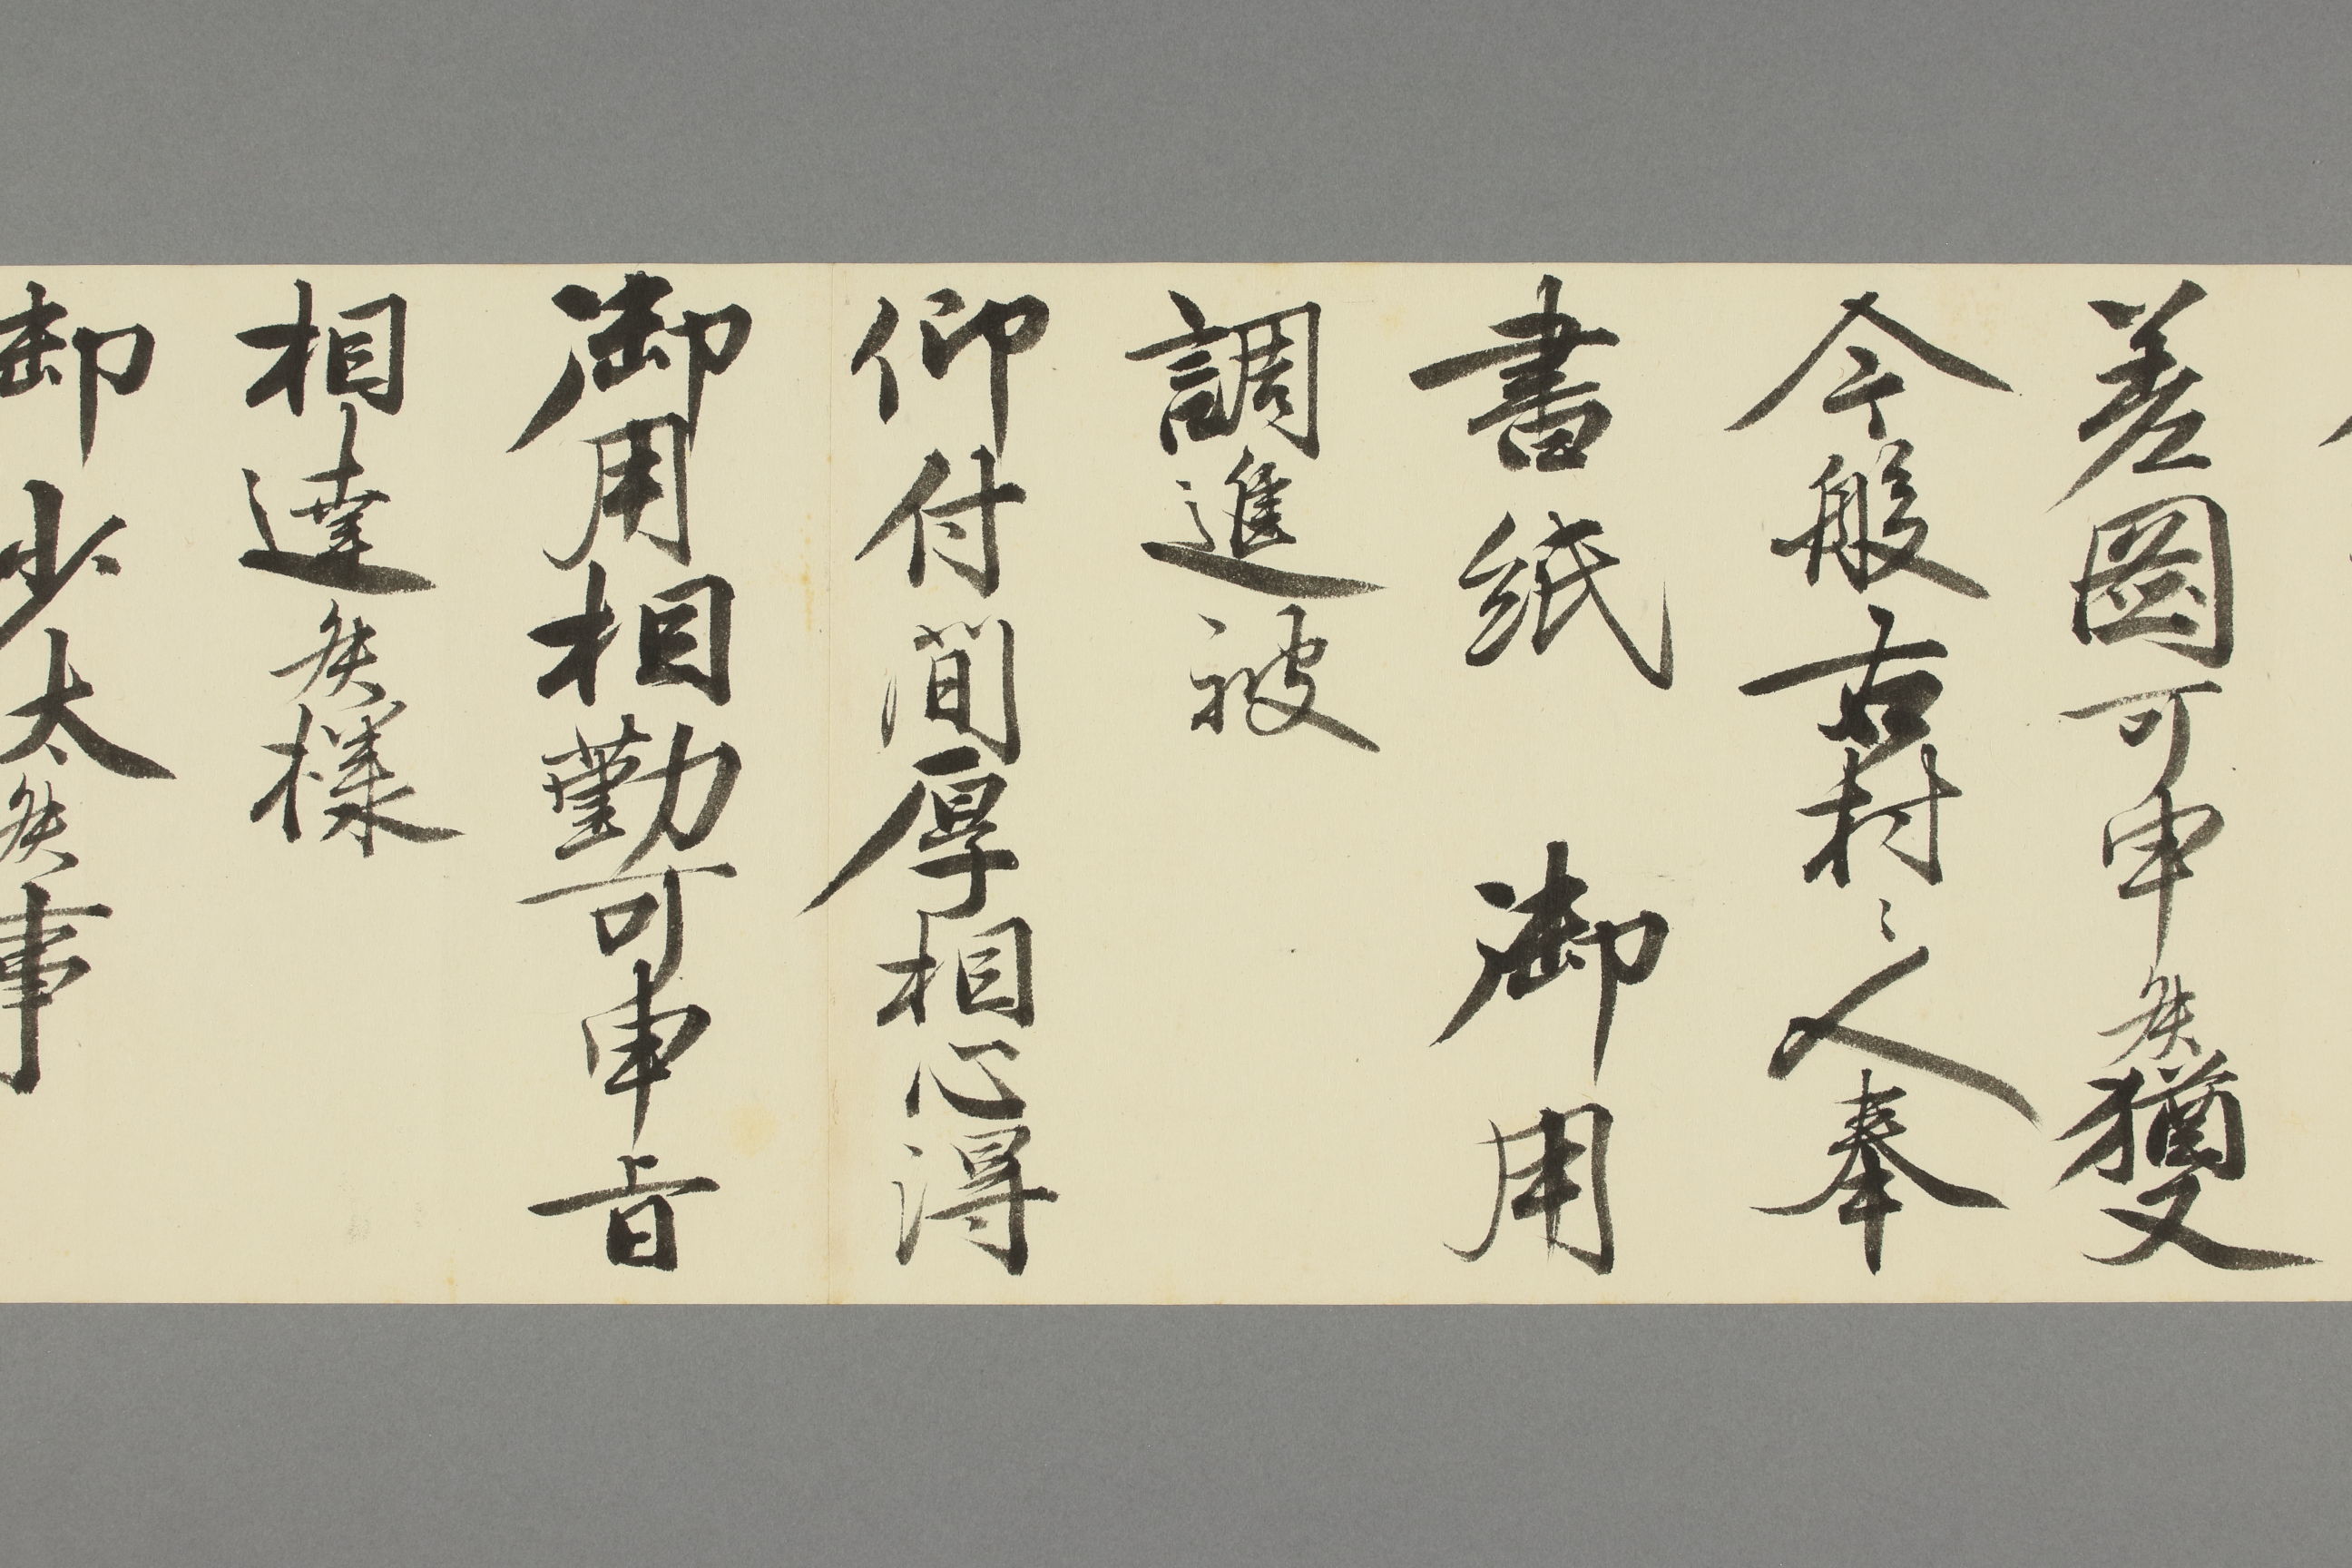 差圖可申候猶又
今般右村々人奉
書紙　御用
調進被
仰付間厚相心得
御用相勤可申旨
相達候様
御沙汰候事